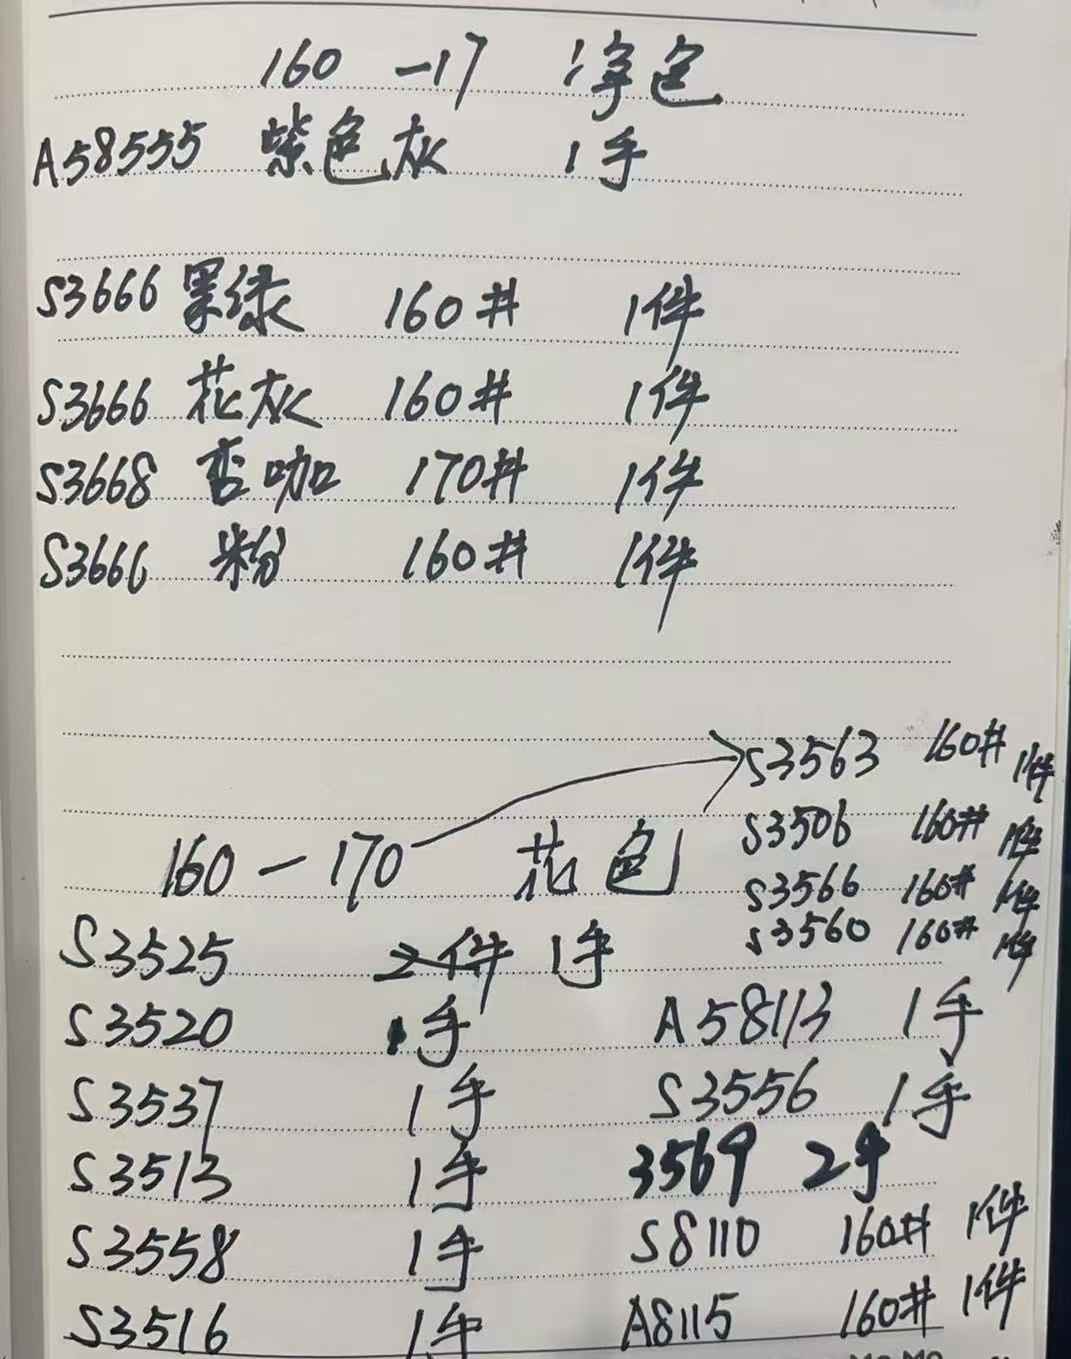 160 -17 净色
A58555 紫色灰 1手
S3666 墨绿 160# 1件
S3666 花灰 160# 1件
S3668 杏咖 170# 1件
S3666 粉 160# 1件
S3563 160# 1件
S3506 160# 1件
160-170 花色
S3566 160# 1件
S3560 160# 1件
S3525 2件 1手
S3520 1手 A58113 1手
S3537 1手 S3556 1手
S3513 1手 3569 2手
S3558 1手 S8110 160# 1件
S3516 1手 A8115 160# 1件